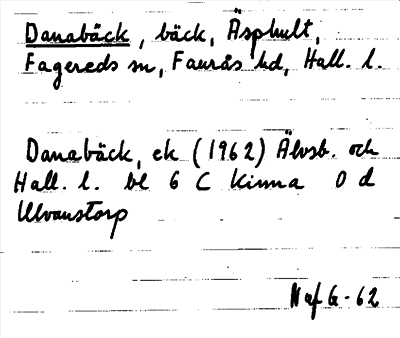 Danabäck, bäck, Äsphult,
Fagereds sn, Faurås hd, Hall. l.
Danabäck, ek (1962) Älvsb. och
Hall. l. bl 6 C Kinna 0 d
Ulvanstorp
Naf G-62